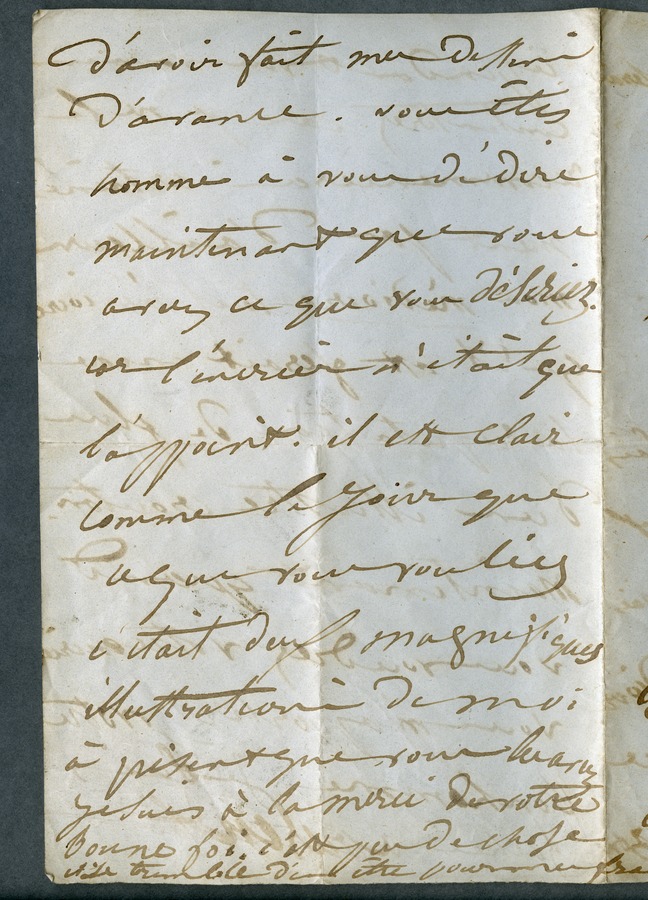 d'avoir fait mes dessins
d'avance. vous êtes
homme à vous dédire
maintenant que vous
avez ce que vous désiriez.
car l'encrier n'était que
l'appoint. il est clair
comme le jour que
ce que vous vouliez
c'était des magnifiques
illustrations de moi
à présent que vous les avez
je suis à la merci de votre
bonne foi. c'est peu de chose
et je tremble d'en être pour mes